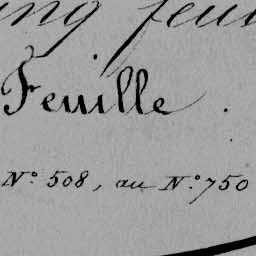 ing feui
Feuille .
Nº. 508, au Nº. 750